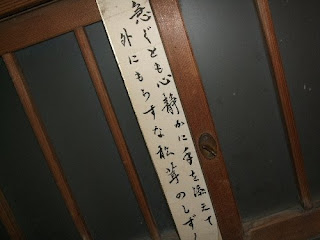 急ぐとも心静かに手を添えて
外にもらすな松茸のしずく